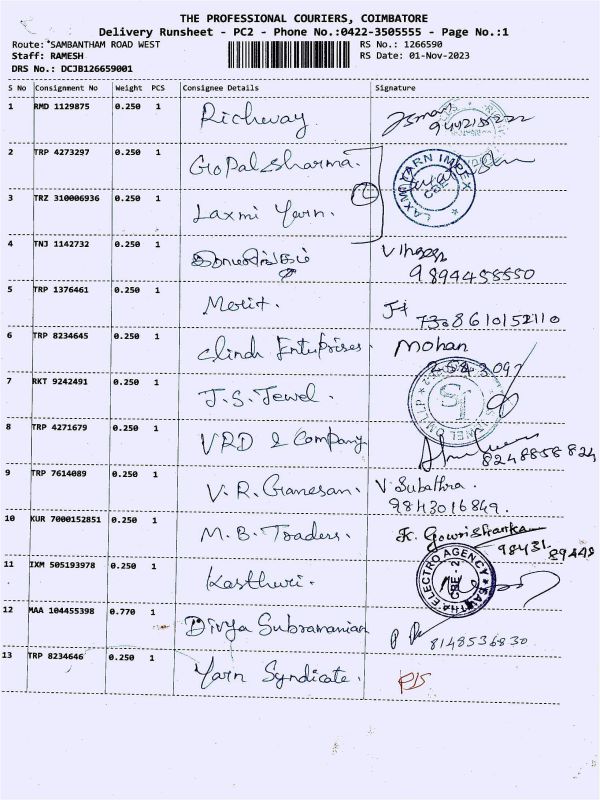 THE PROFESSIONAL COURIERS, COIMBATORE
Delivery Runsheet - PC2 - Phone No.:0422-3505555 - Page No.:1
Route: SAMBANTHAM ROAD WEST RS No.: 1266590
Staff: RAMESH RS Date: 01-Nov-2023
DRS No.: DCJB126659001
S No Consignment No Weight PCS Consignee Details Signature
1 RMD 1129875 0.250 1 Richway
2 TRP 4273297 0.250 1 Gopal Sharma.
LAXMI YARN IMPEX CBE
3 TRZ 310006936 0.250 1 Laxmi Yarn. 2
4 TNJ 1142732 0.250 1
9894455550
5 TRP 1376461 0.250 1 Merit. 8610152110
6 TRP 8234645 0.250 1 Enterprises. Mohan
7 RKT 9242491 0.250 1 J.S. Jewel.
8 TRP 4271679 0.250 1 VRD & Company
8248858824
9 TRP 7614089 0.250 1 V.R. Ganesan. V. Subathra.
9843016849.
10 KUR 7000152851 0.250 1 M.B. Traders. K. Gowrishanka
98431 89448
11 IXM 505193978 0.250 1 Kasthuri. ELECTRO AGENCY CBE - 2
12 MAA 104455398 0.770 1 Divya Subramanian
8148536830
13 TRP 8234646 0.250 1 Yarn Syndicate.